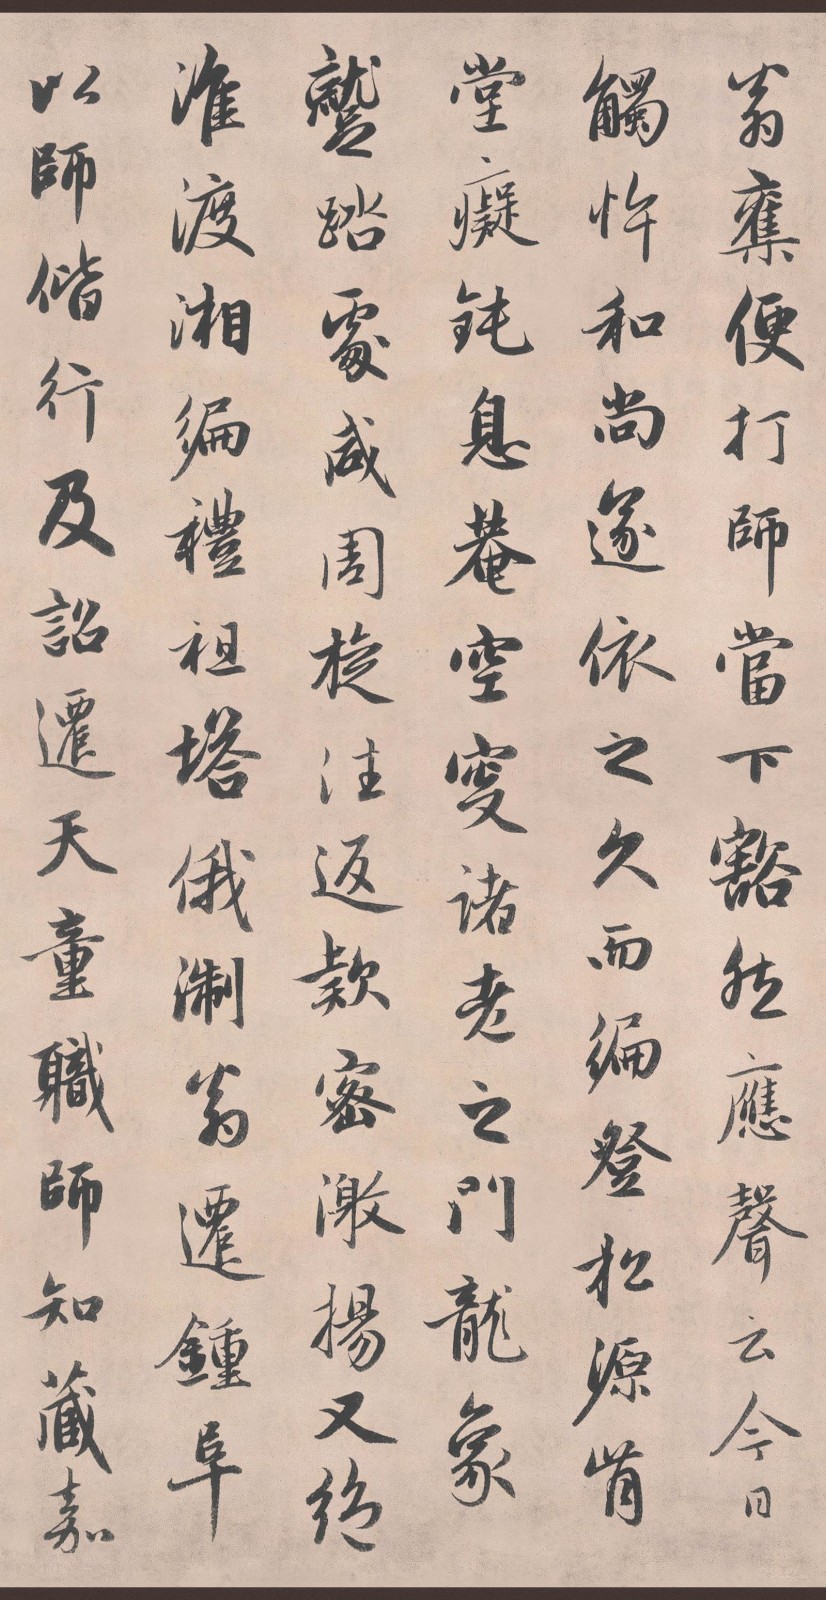 翁奪便打師當下豁然應聲云今日
觸忤和尚遂依之久而徧登松源肯
堂癡鈍息菴空叟諸老之門龍象
蹴踏處咸周旋往返款密激揚又絶
淮渡湘徧禮祖塔俄淛翁遷鍾阜
以師偕行及詔遷天童職師知藏嘉